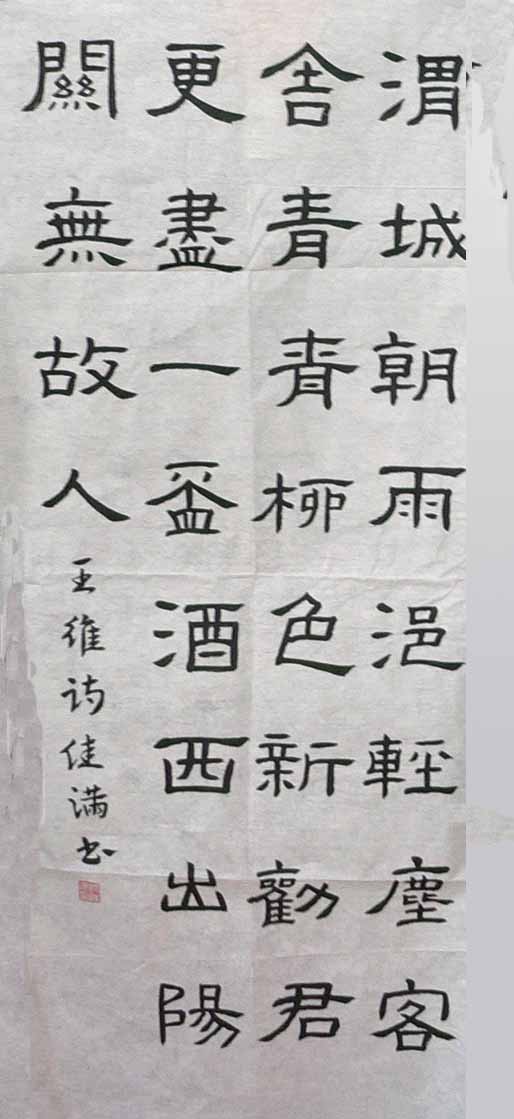 渭城朝雨浥輕塵客
舍青青柳色新勸君
更盡一盃酒西出陽
關無故人
王維诗佳满书